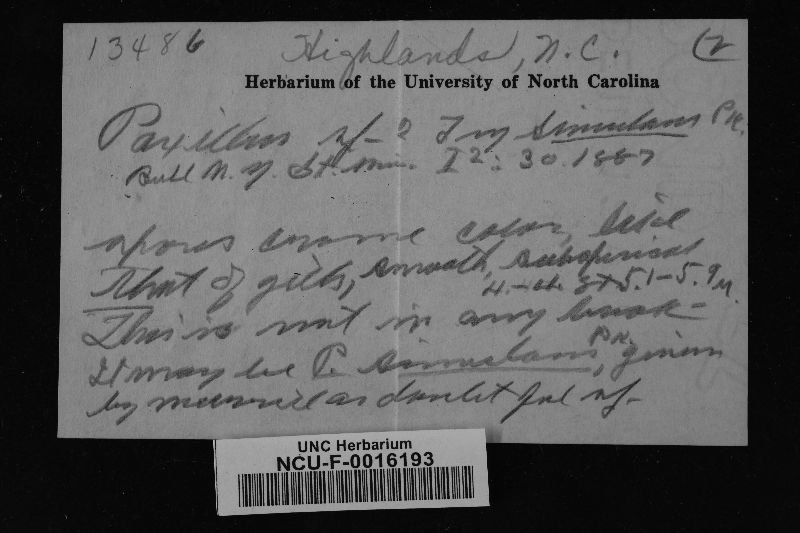 13486 Highlands, N.C. (2
Herbarium of the University of North Carolina
Paxillus sp-? Try simulans Pk.
Bull N.Y. St. Mus. I 2: 30. 1887
spores creame color, like
that of gills, smooth, subspherical
4.-4. x 5.1-5.9 µ.
This is not in any book-
It may be P. simulans Pk., given
by Murrill as doubtful sp-
UNC Herbarium
NCU-F-0016193